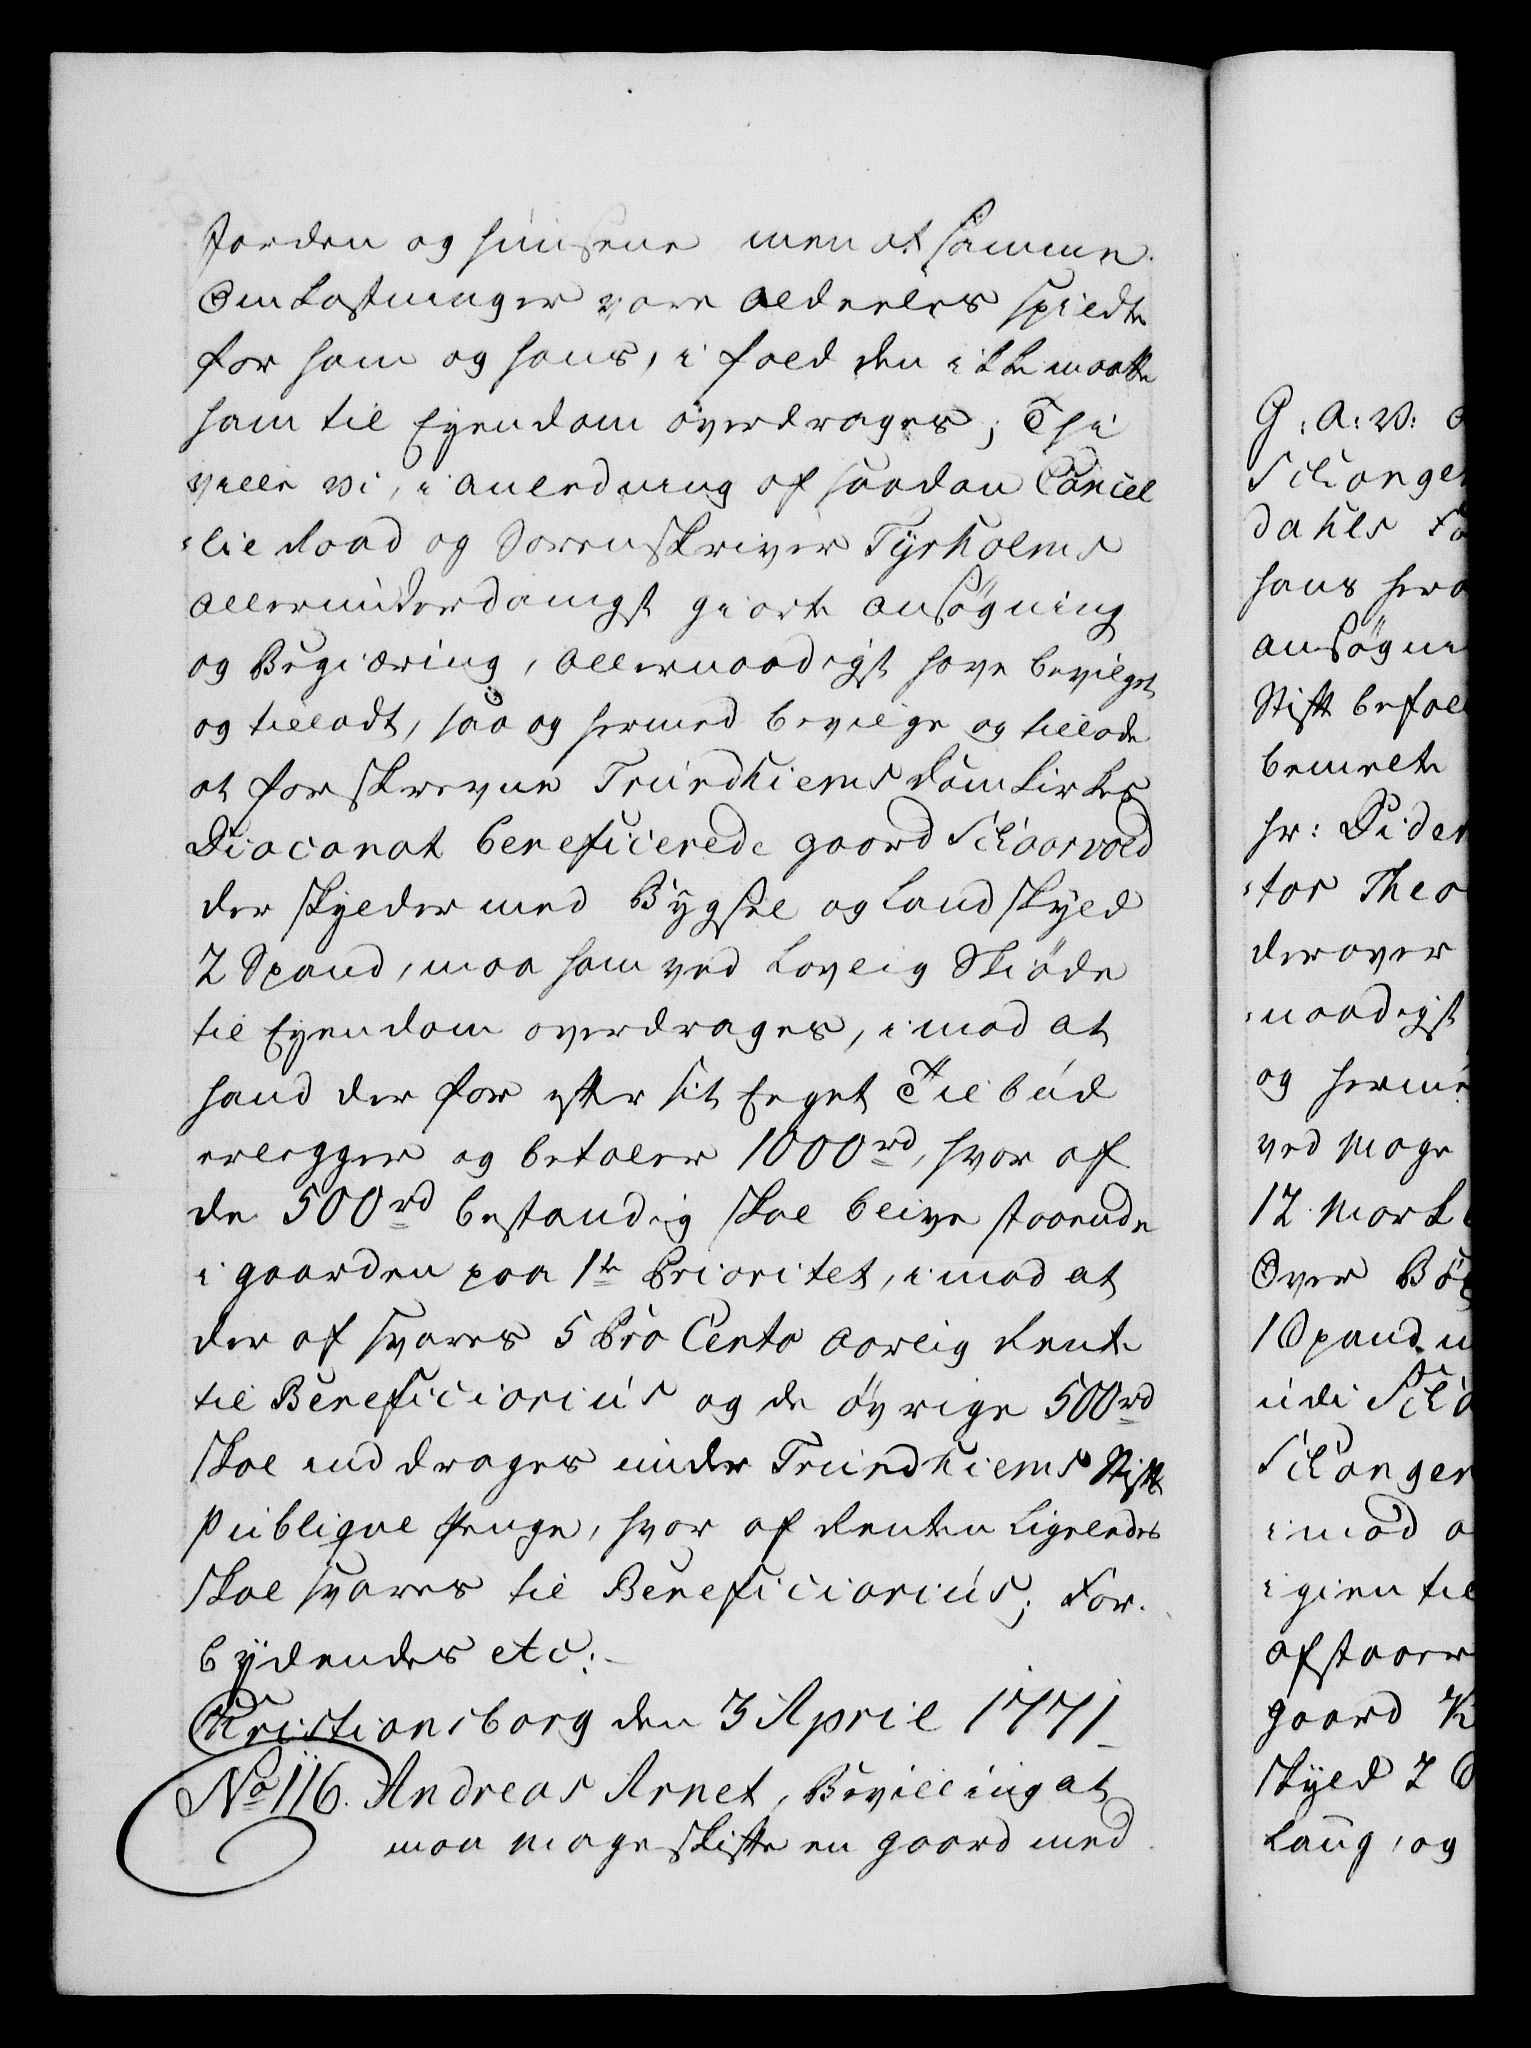 Jorden og huusene men at samme
Omkostninger vare aldeeles spildte
for ham og hans, i fald den ikke maatte
ham til Eyendom overdrages; Thi
ville vi, i anledning af saadan Cancel
-lie Raad og Sorenskriver Tyrholms
allerunderdanigst giorte ansøgning
og Begiæring, allernaadigst have bevilget
og tilladt, saa og hermed bevilge og tillade
at forskrevne Trundhiems Domkirkes
Diaconat beneficerede gaard Schaarvold
der skylder med Bygsel og Landskyld
2 Spand, maa ham ved Lovlig Skiøde
til Eyendom overdrages, imod at
hand der for efter sit Eeget Tilbud
erlegger og betaler 1000 rd, hvor af
de 500 rd bestandig skal blive staaende
i gaarden paa 1te Prioritet, imod at
der af svares 5 Pro Cento aarlig Rente
til Beneficiarius og de øvrige 500 rd
skal inddrages under Trundhiems Stifts
Publique Penge, hvor af Renten Ligeledes
skal svares til Beneficiarius; For-
bydendes etc:
Christiansborg den 3 April 1771
No 116. Andreas Arnet, Bevilling at
maa mageskifte en gaard med
G: A: V: 
Schonge
dahls Fo
hans her
ansøgni
Stift befal
bemelte
hr: Dider
-tor Theo
derover
-naadigst
og herme
ved Mage
12 Mark
Over Bø
1 Spand
udi Scho
Schonger
imod a
igien til
afstaaer
gaard K
skyld 2
Laug, og